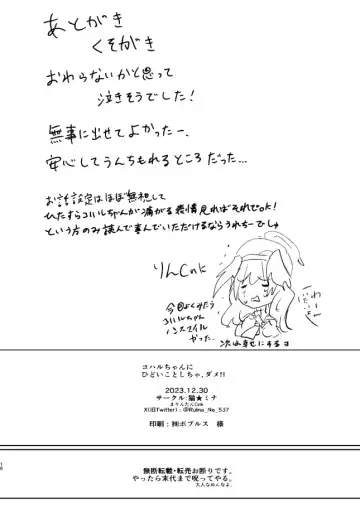 あとがき
くそがき
おわらないかと思って
泣きそうでした!
無事に出せてよかったー、
安心してうんちもれるところだった...
お話、設定はほぼ無視して
ひたすらコハルちゃんが痛がる表情見ればそれでok!
という方のみ読んで喜んでいただけるならうれちーでしゅ
りんCnk
今回よくみたら
コハルちゃん
ノンスマイル
やった。
わー
次は幸せにするョ
コハルちゃんに
ひどいことしちゃ、ダメ!!
2023.12.30
サークル:猫★ミナ
まりんたんCnk
X(旧Twitter):@Ruina_Na_537
印刷:㈱ポプルス 様
18
無断転載・転売お断りです。
やったら末代まで呪ってやる。
大人なめんなよ。